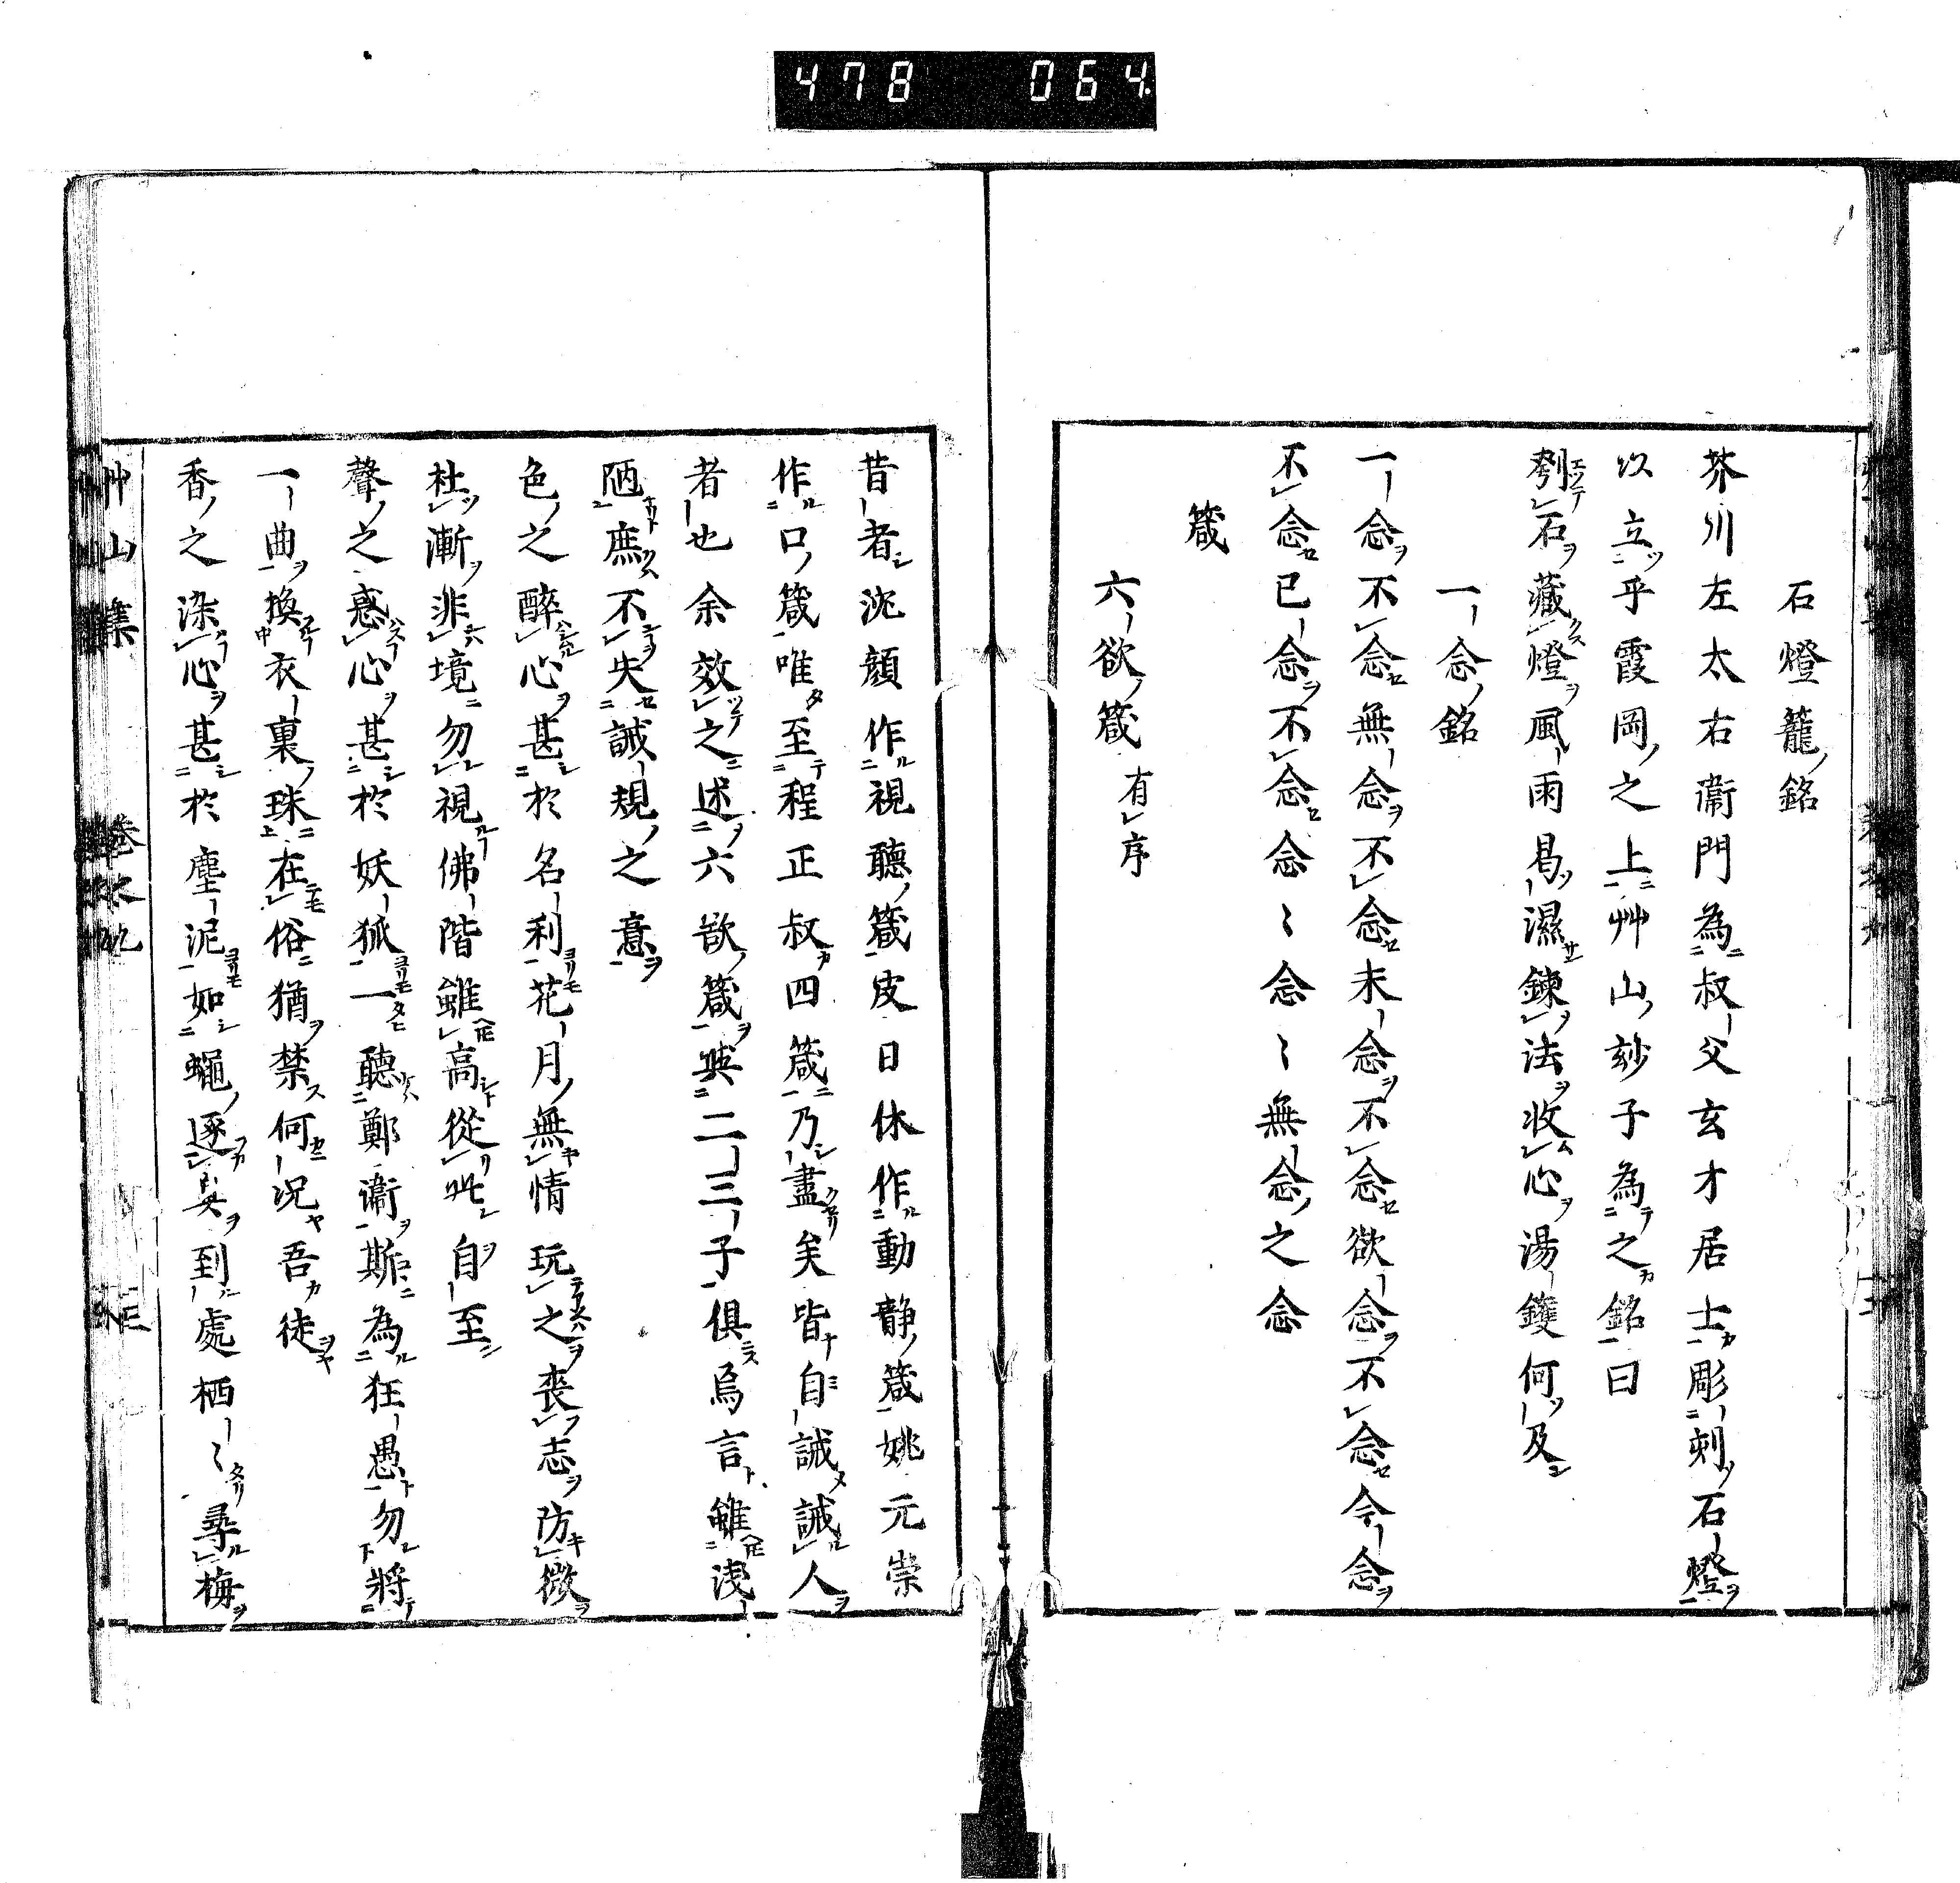 478 064
石燈籠銘
芥川左太右衞門為叔父玄才居士彫刺石燈
以立乎霞岡之上艸山玅子為之銘曰
刳石藏燈風雨曷濕鍊法收心湯鑊何及
一念銘
一念不念無念不念未念不念欲念不念今念
不念已念不念念〻念〻無念之念
箴
六欲箴 有序
昔者沈顔作視聽箴皮日休作動静箴姚元崇
作口箴唯至程正叔四箴乃盡矣皆自誡誡人
者也余效之述六欲箴與二三子俱烏言雖淺
陋庶不失誡規之意
色之醉心甚於名利花月無情玩之喪志防微
杜漸非境勿視佛階雖高從此自至
聲之惑心甚於妖狐一聽鄭衞斯為狂愚勿將
一曲換衣裏珠在俗猶禁何況吾徒
香之染心甚於塵泥如蠅逐臭到處栖〻尋梅
艸山集